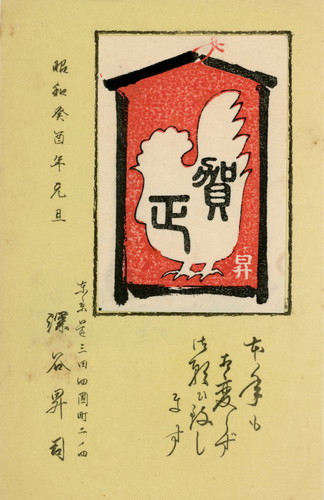 賀
正
昇
本年も
相変らず
御願ひ致し
ます
昭和癸酉年元旦
東京芝三田四国町二ノ四
深谷昇司